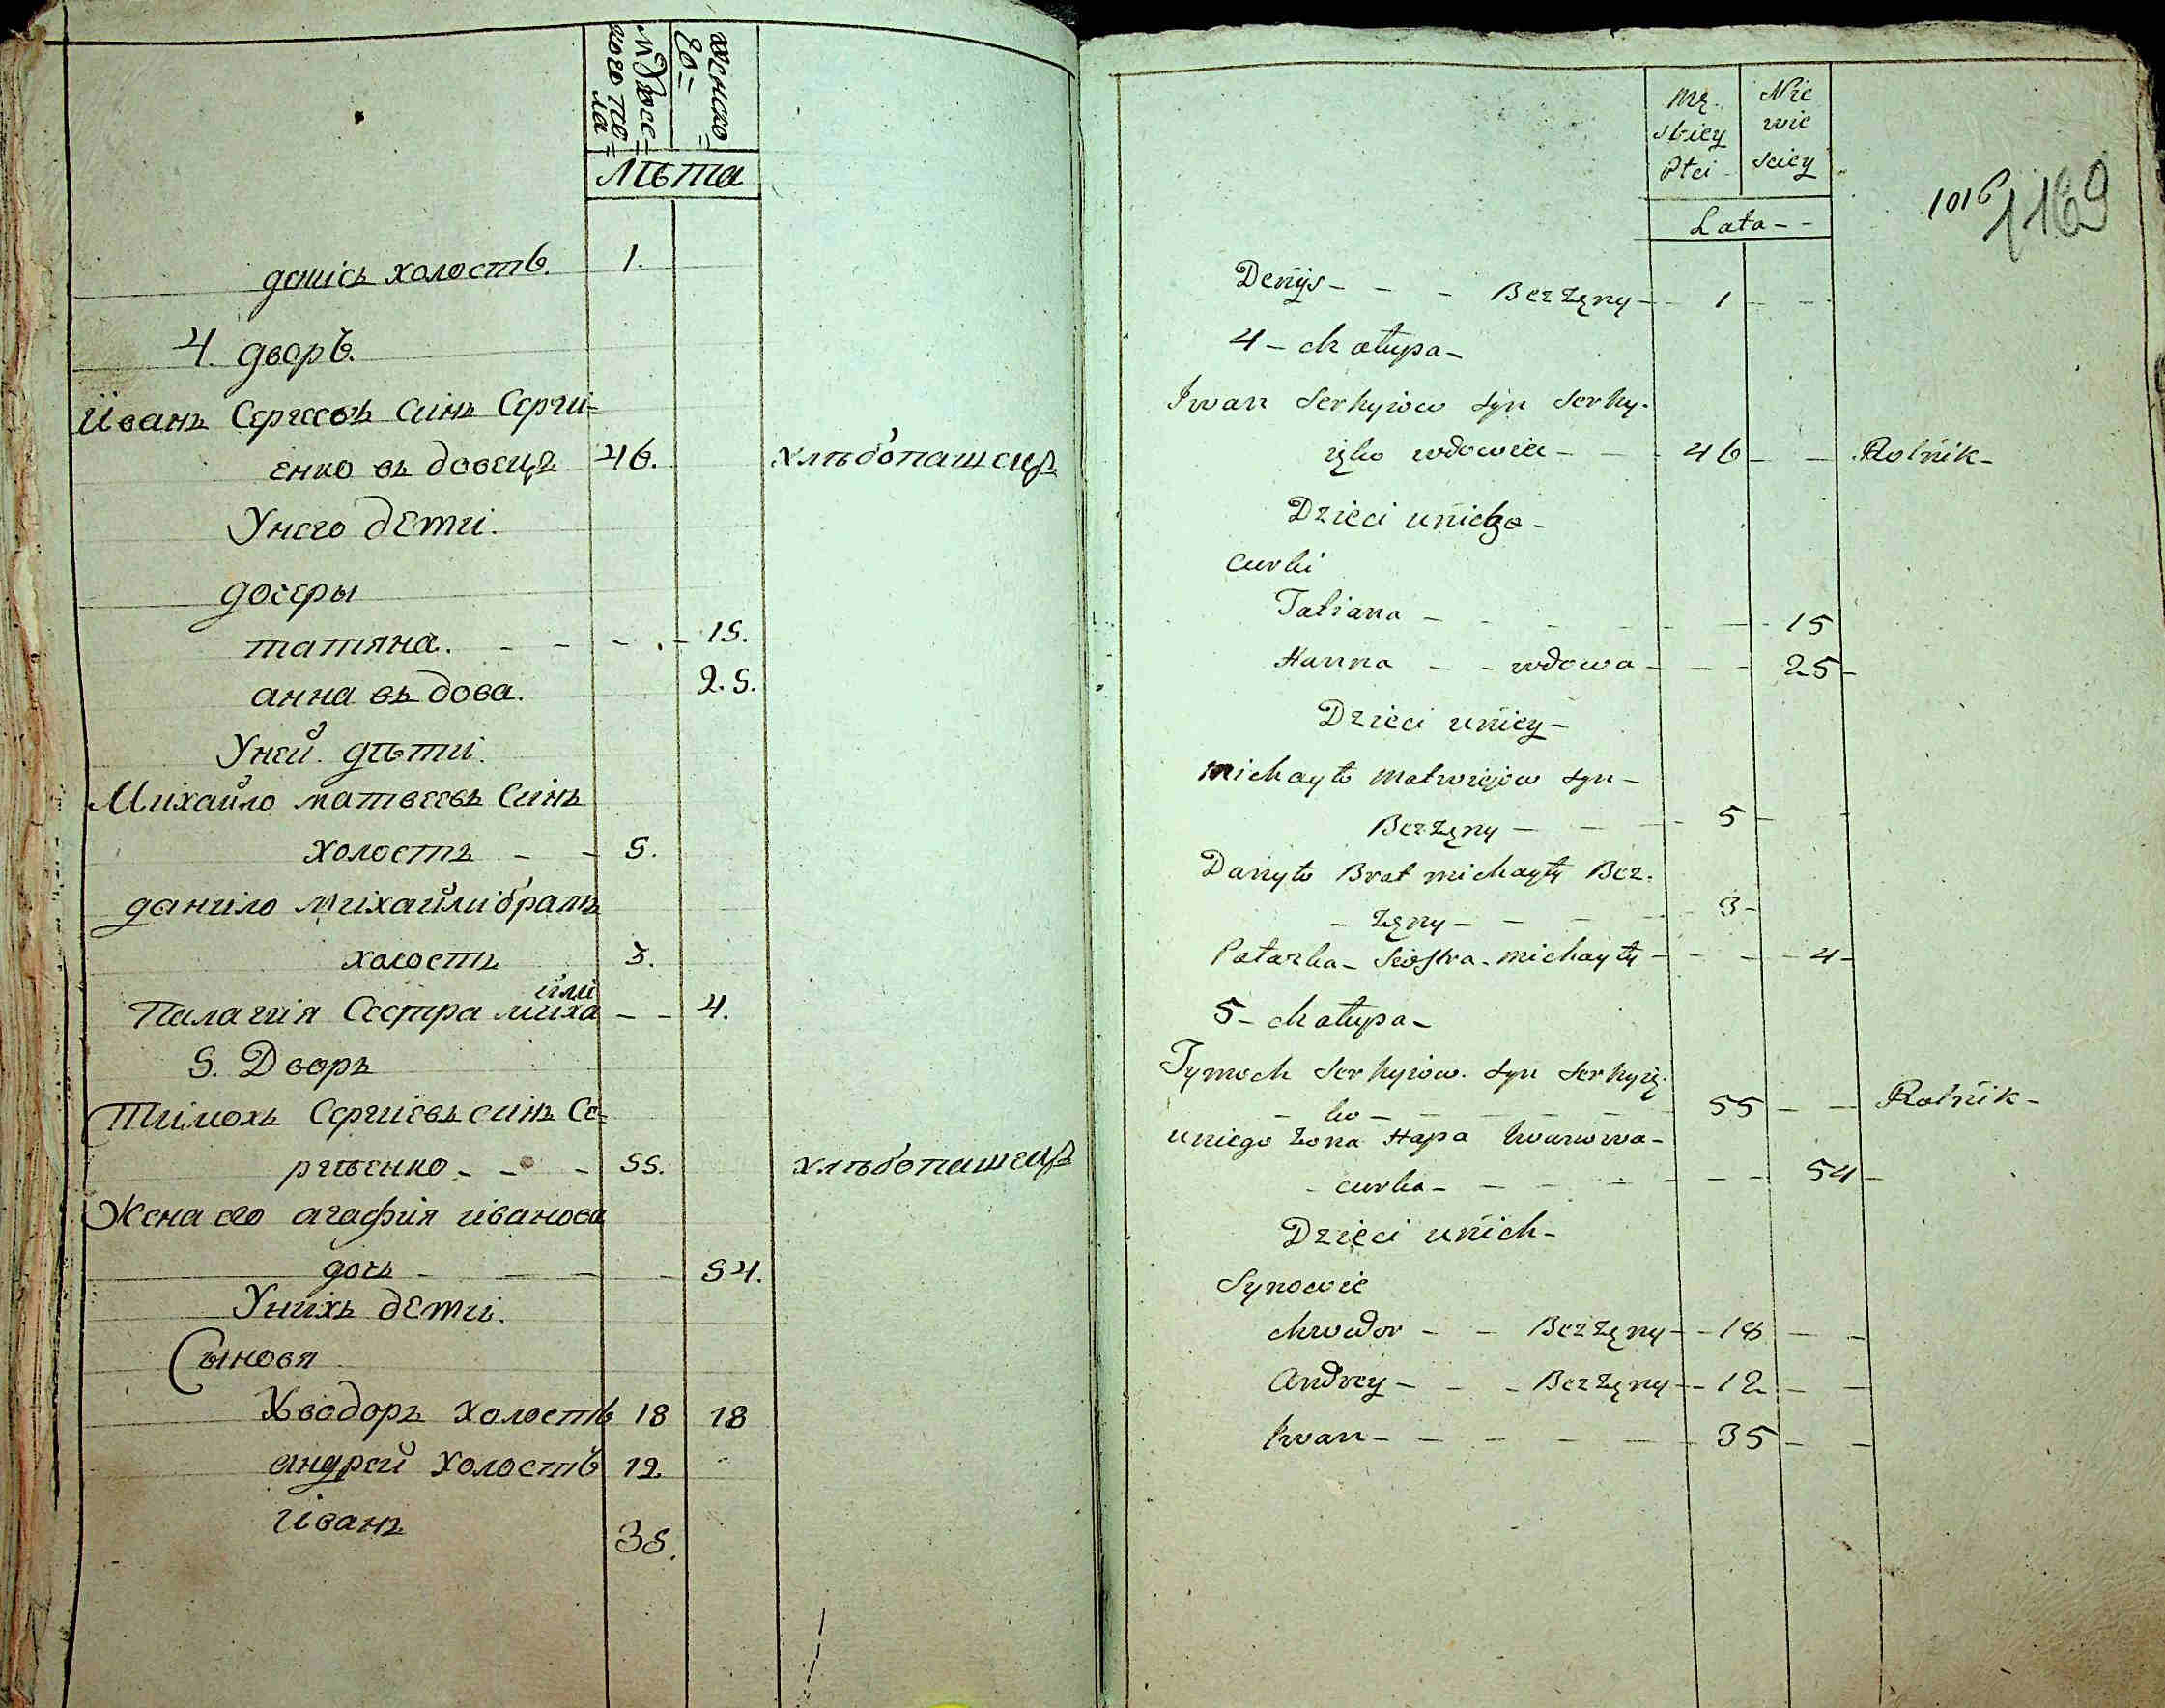 мужес=
кого по=
ла=
женско=
го=
лѣта
денісъ холостъ. 1.
4. дворъ.
Иванъ Сергеевъ синъ Серги=
енко въдовецъ 46. хлѣбопашецъ
У него дети.
дочеры
татяна. - - - . - 15.
анна въдова. 25.
У ней дѣти.
Михайло матвеевъ синъ
холостъ - - 5.
данило михайли братъ
холостъ 3.
йли
Палагия Сестра миха - - 4.
5. Дворъ
Тимохъ Сергиевъ синъ Се=
ргѣенко - - - 55. хлѣбопашецъ
Жена его агафия иванова
дочь - - - 54.
У нихъ дети.
Сыновя
Хводоръ холостъ 18 18
андрей холостъ 12
Иванъ 35.
Mę
skiey
Płci
Nie
wie
sciey
Lata - -
1016
1169
Denys - - - Bezżęny - - 1 - -
4 - chałupa -
Iwan Serhyiow syn Serhy-
ięko wdowiec - - - 46 - - Rolnik -
Dzieci uniego -
Curki
Tatiana - - - - - - - 15
Hanna - - wdowa - - - 25 -
Dzieci uniey -
Michayło Matwiejow syn -
Bezżęny - - - 5 - -
Danyło Brat michayły Bez-
- żęny - - - - 3 -
Pałazka - Siostra - michayły - - - - 4 -
5 - chałupa -
Tymoch Serhyiow syn Serhyię-
- ko - - - - - 55 - - Rolnik -
uniego żona Hapa Iwanowa -
- curka - - - - - - - 54 -
Dzieci unich -
Synowie
Chwedor - - Bezżęny - - 18 - -
Andrey - - - Bezżęny - - 12 - -
Iwan - - - - - - 35 - -